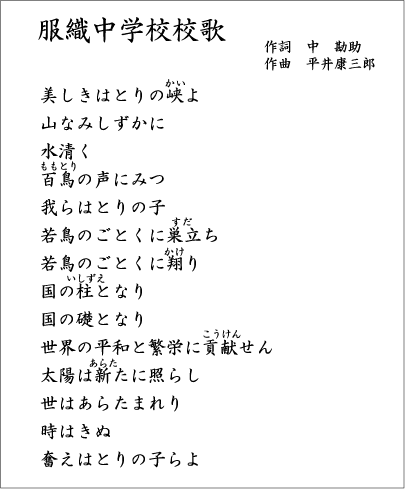 服織中学校校歌
作詞　中　勘助
作曲　平井康三郎
かい
美しきはとりの峡よ
山なみしずかに
水清く
ももとり
百鳥の声にみつ
我らはとりの子
すだ
若鳥のごとくに巣立ち
かけ
若鳥のごとくに翔り
いしずえ
国の柱となり
国の礎となり
こうけん
世界の平和と繁栄に貢献せん
あらた
太陽は新たに照らし
世はあらたまれり
時はきぬ
奮えはとりの子らよ